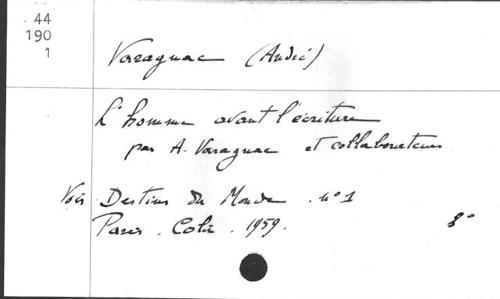 44
190
1
Varagnac (André)
L'homme avant l'écriture
par A. Varagnac et collaborateurs
Voir Destins du Monde . n° 1
Paris . Colin . 1959. 8°